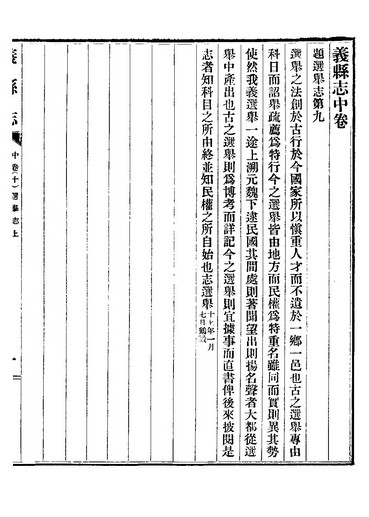 義縣志中卷
題選舉志第九
選舉之法創於古行於今國家所以愼重人才而不遺於一鄉一邑也古之選舉專由
科目而詔舉疏薦爲特行今之選舉皆由地方而民權爲特重名雖同而實則異其勢
使然我義選舉一途上溯元魏下逮民國其間處則著聞望出則揚名聲者大都從選
舉中產出也古之選舉則爲博考而詳記今之選舉則宜據事而直書俾後來披閱是
志者知科目之所由終並知民權之所自始也志選舉
十七年一月
七日
義縣志
中卷(十)選舉志上
一